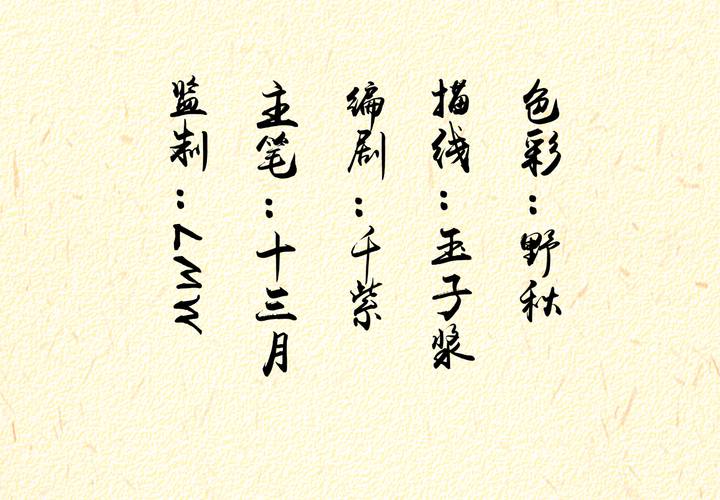 色彩：野秋
描线：玉子浆
编剧：千紫
主笔：十三月
监制：